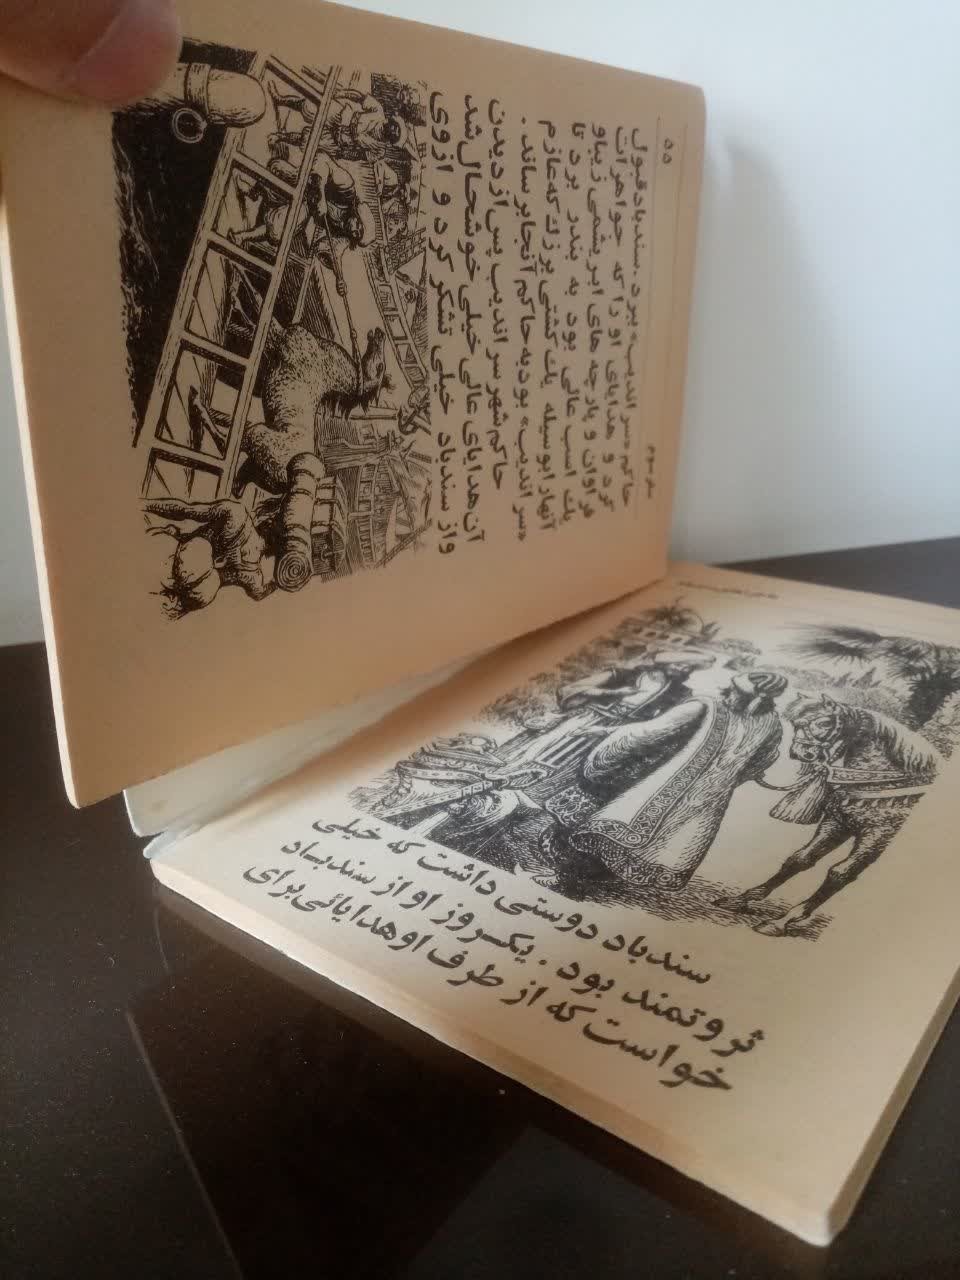 سندباد دوستی داشت که خیلی
ثروتمند بود. یکروز او از سندباد
خواست که از طرف او هدایائی برای
۵۵
سفر سوم
حاکم «سراندیب» ببرد. سندباد قبول
کرد و هدایای او را که جواهرات
فراوان و پارچه های ابریشمی زیبا و
یك اسب عالی بود به بندر برد تا
آنها را بوسیله یك کشتی بزرك که عازم
«سراندیب» بود به حاکم آنجا برساند.
حاکم شهر سراندیب پس از دیدن
آن هدایای عالی خیلی خوشحال شد
و از سندباد خیلی تشکر کرد و از وی